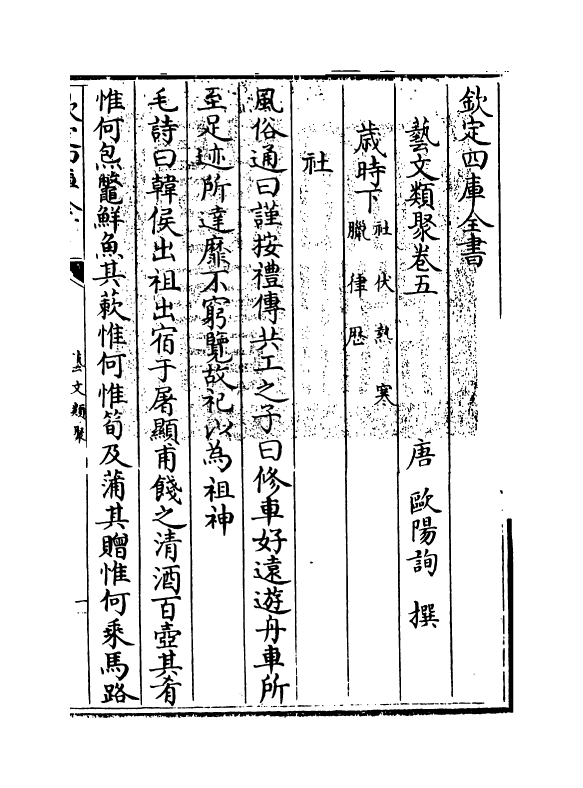 欽定四庫全書
藝文類聚卷五
唐 歐陽詢 撰
歲時下 社 伏 熱 寒 臘 律 厯
社
風俗通曰謹按禮傳共工之子曰修車好遠遊舟車所
至足迹所達靡不窮覽故祀以為祖神
毛詩曰韓侯出祖出宿于屠顯甫餞之清酒百壺其肴
惟何炰鼈鮮魚其蔌惟何惟筍及蒲其贈惟何乘馬路
藝文類聚
一